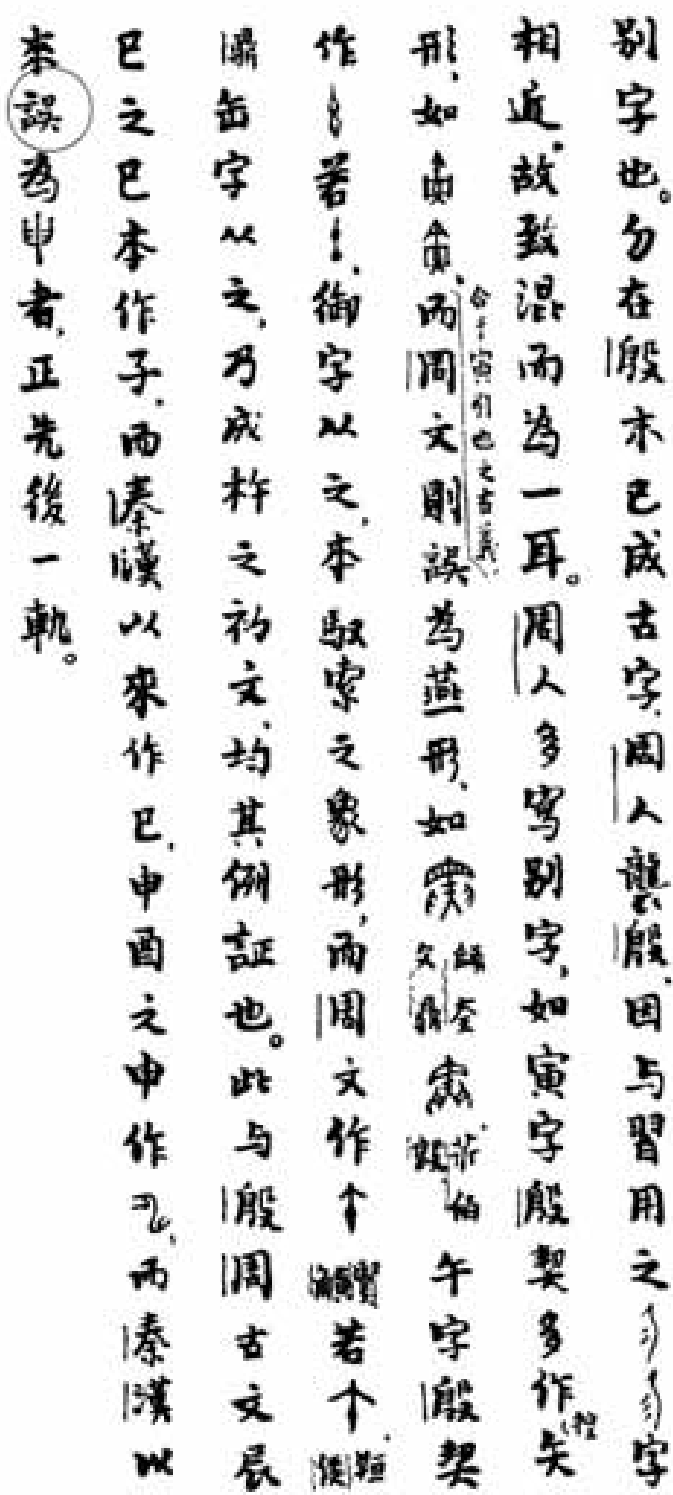 别字也。勿在殷末已成古字,周人襲殷,因与習用之字
相近。故致混而為一耳。周人多寫别字,如寅字殷契多作矢
形,如而周文則誤為燕形,如午字殷契
作若,御字从之,本馭索之象形,而周文作若
缶字从之,乃成杵之初文,均其例証也。此与殷周古文辰
巳之巳本作子,而秦漢以來作巳,申酉之申作而秦漢以
來誤為申者,正先後一軌。